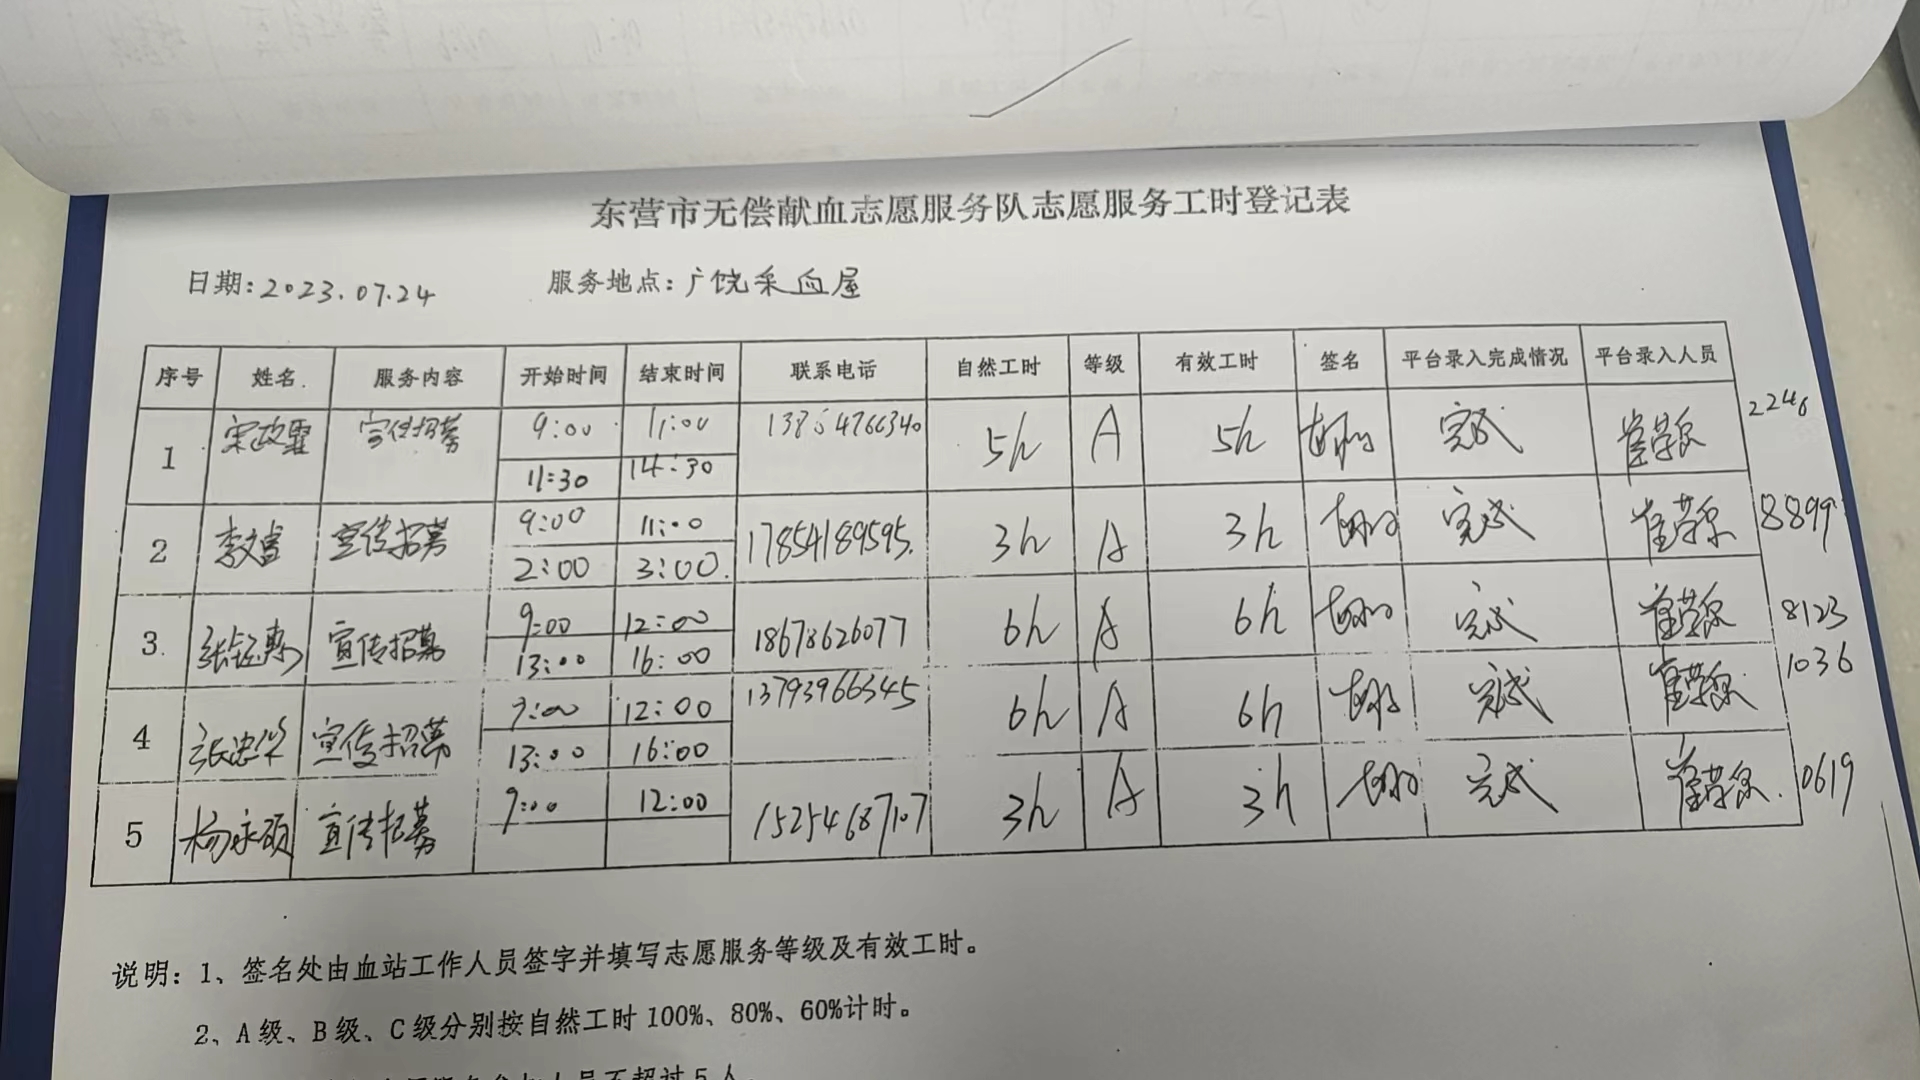 东营市无偿献血志愿服务队志愿服务工时登记表
日期:2023.07.24 服务地点:广饶采血屋
序号 姓名 服务内容 开始时间 结束时间 联系电话 自然工时 等级 有效工时 签名 平台录入完成情况 平台录入人员
1 宋政霏 宣传招募 9:00 11:00 5h A 5h 完成 崔荣泉 2246
11:30 14:30
2 李文富 宣传招募 9:00 11:00 17854189595. 3h A 3h 完成 崔荣泉 8899
2:00 3:00
3 宣传招募 9:00 12:00 18678626077 6h A 6h 完成 崔荣泉 8123
13:00 16:00
4 宣传招募 9:00 12:00 13793966345 6h A 6h 完成 崔荣泉 1036
13:00 16:00
5 杨永硕 宣传招募 9:00 12:00 15254687107 3h A 3h 完成 崔荣泉 0619
说明:1、签名处由血站工作人员签字并填写志愿服务等级及有效工时。
2、A级、B级、C级分别按自然工时100%、80%、60%计时。
人员不超过5人。